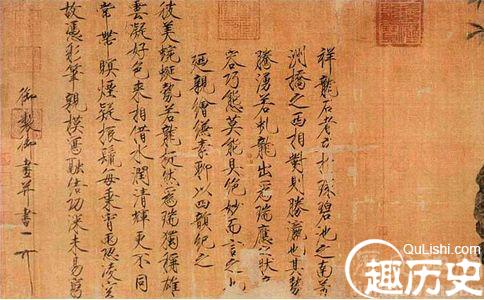 祥龍石者立於環碧池之南芳
洲橋之西相對則勝瀛也其勢
騰湧若虬龍出為瑞應之狀奇
容巧態莫能具絕妙而言之也
廼親繪縑素聊以四韻紀之
彼美蜿蜒勢若龍挺然為瑞獨稱雄
雲凝好色來相借水潤清輝更不同
常帶暝煙疑振鬣每乘宵雨恐凌空
故憑彩筆親模寫融結功深未易窮
御製御畫并書
QuLiShi.com
趣历史